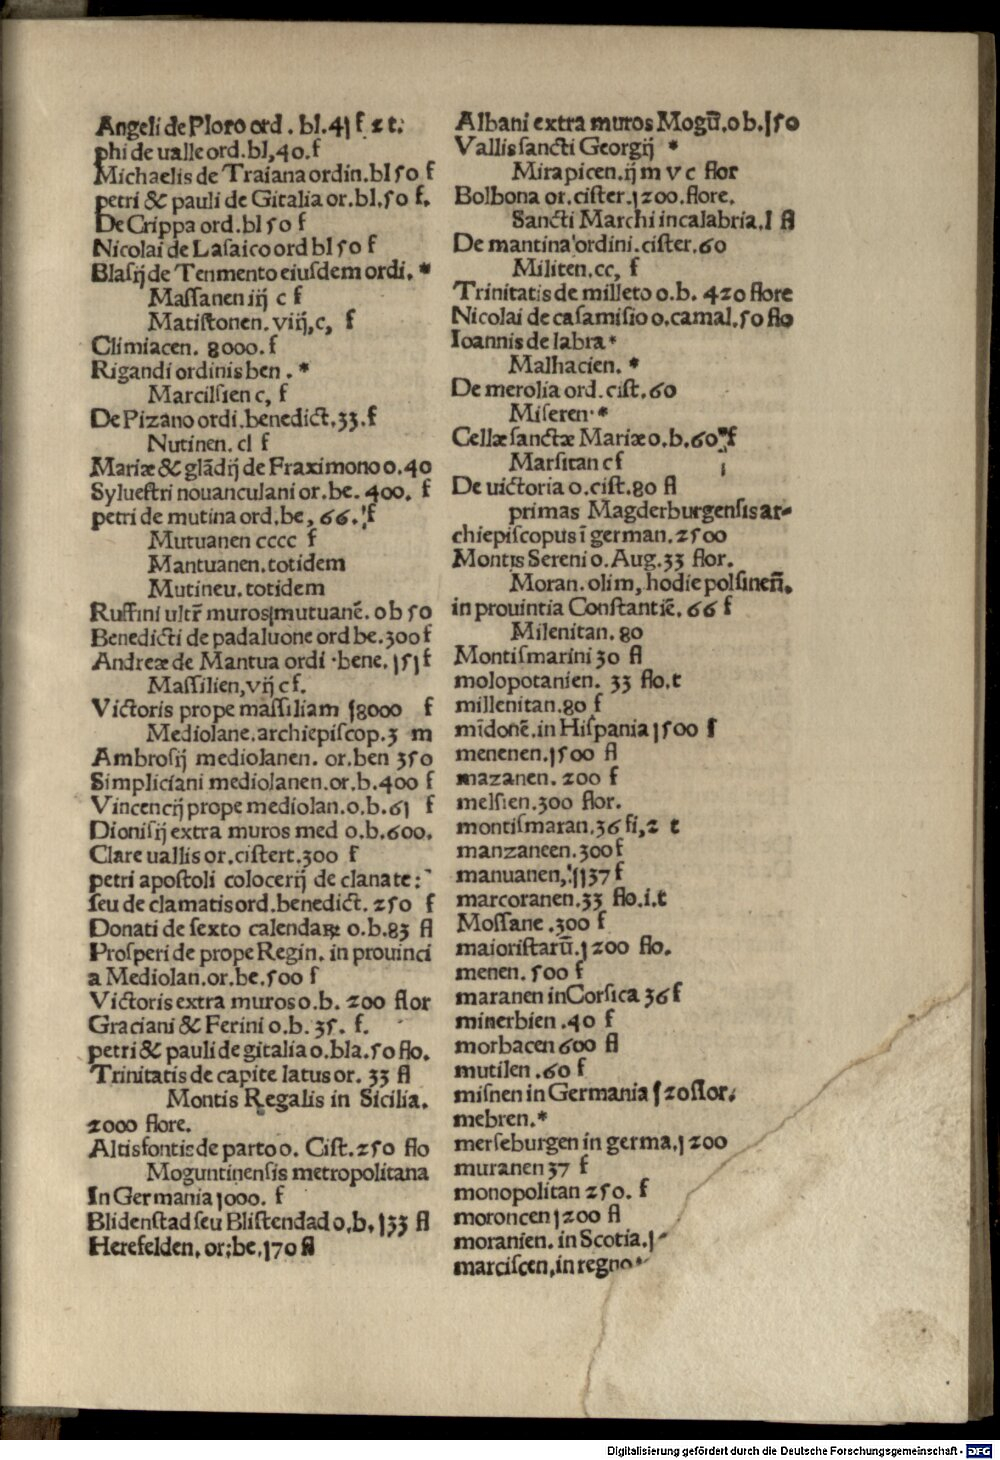 Angeli de Ploro ord . bl.41 f 2 t.
phi de ualle ord.bl,40.f
Michaelis de Traiana ordin.bl 50 f
petri & pauli de Gitalia or.bl.50 f.
De Crippa ord.bl 50 f
Nicolai de Lasaico ord bl 50 f
Blasij de Tenmento eiusdem ordi. *
Massanen iij c f
Matistonen.viij,c, f
Climiacen. 8000.f
Rigandi ordinis ben . *
Marcilsien c, f
De Pizano ordi.benedict.33.f
Nutinen. cl f
Mariæ & glādij de Fraximono o.40
Syluestri nouanculani or.be. 400. f
petri de mutina ord.be, 66. f
Mutuanen cccc f
Mantuanen.totidem
Mutineu.totidem
Ruffini ultr̄ muros mutuanē. ob 50
Benedicti de padaluone ord be.300 f
Andreæ de Mantua ordi .bene. 151 f
Massilien,vij c f.
Victoris prope massiliam 18000 f
Mediolane.archiepiscop.3 m
Ambrosij mediolanen. or.ben 350
Simpliciani mediolanen.or.b.400 f
Vincencij prope mediolan.o.b.61 f
Dionisij extra muros med o.b.600.
Clare uallis or.cistert.300 f
petri apostoli colocerij de clanate:
seu de clamatis ord.benedict. 250 f
Donati de sexto calendaꝝ o.b.83 fl
Prosperi de prope Regin. in prouinci
a Mediolan.or.be.500 f
Victoris extra muros o.b. 200 flor
Graciani & Ferini o.b. 35. f.
petri & pauli de gitalia o.bla.50 flo.
Trinitatis de capite latus or. 33 fl
Montis Regalis in Sicilia.
2000 flore.
Altisfontis de parto o. Cist.250 flo
Moguntinensis metropolitana
In Germania 1000. f
Blidenstad seu Blistendad o,b.133 fl
Herefelden. or:be.170 fl
Albani extra muros Mogū.ob.150
Vallis sancti Georgij *
Mirapicen.ij m v c flor
Bolbona or.cister.1200.flore.
Sancti Marchi incalabria.l fl
De mantina ordini.cister.60
Militen.cc, f
Trinitatis de milleto o.b. 420 flore
Nicolai de casamisio o.camal.50 flo
Ioannis de labra *
Malhacien. *
De merolia ord.cist.60
Miseren. *
Cellæ sanctæ Mariæ o.b.60 f
Marsitan c f
De uictoria o.cist.80 fl
primas Magderburgensis ar-
chiepiscopus ī german.2500
Montis Sereni o.Aug.33 flor.
Moran.olim, hodie polsineñ.
in prouintia Constantiē. 66 f
Milenitan. 80
Montismarini 30 fl
molopotanien. 33 flo.t
millenitan.80 f
mīdonē.in Hispania 1500 f
menenen.1500 fl
mazanen. 200 f
melsien.300 flor.
montismaran.36 fi,2 t
manzaneen.300 f
manuanen, 1137 f
marcoranen.33 flo.i.t
Mossane .300 f
maioristarū.1200 flo.
menen. 500 f
maranen inCorsica 36 f
minerbien .40 f
morbacen 600 fl
mutilen .60 f
misnen in Germania 120 flor.
mebren.*
merseburgen in germa.1200
muranen 37 f
monopolitan 250. f
moroncen 1200 fl
moranien. in Scotia.
marciscen,in regno
Digitalisierung gefördert durch die Deutsche Forschungsgemeinschaft - DFG